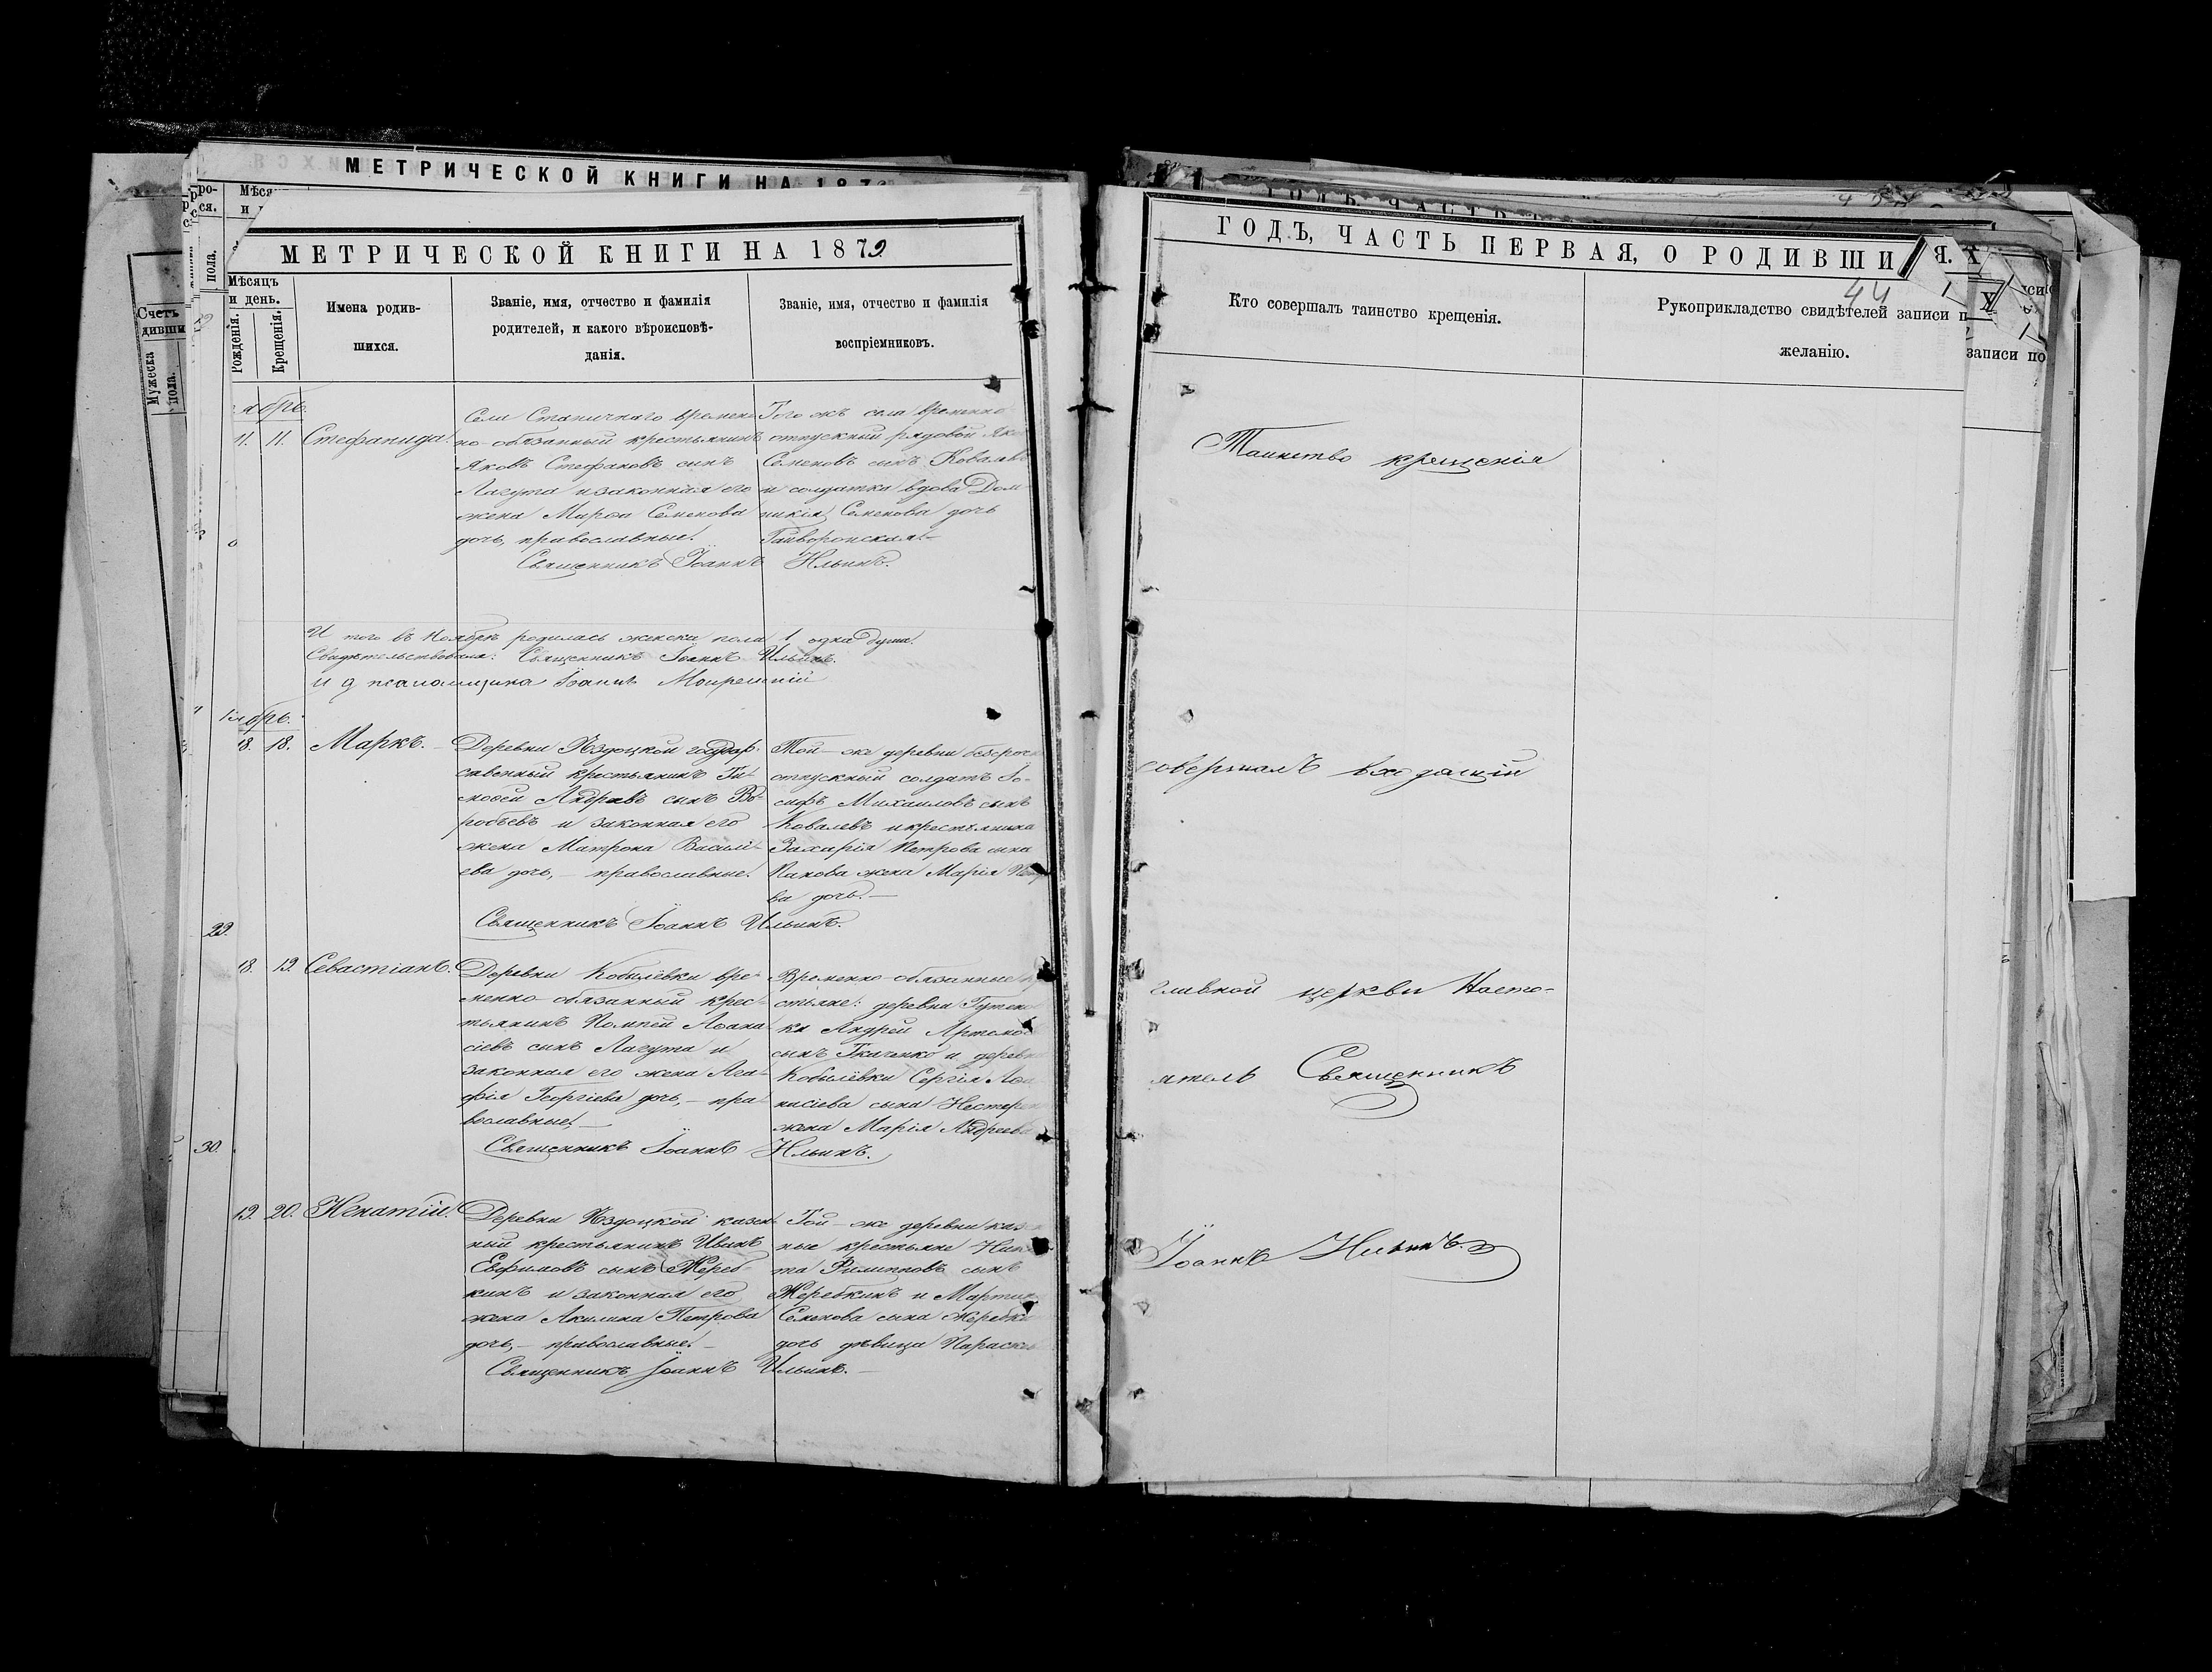 МЕТРИЧЕСКОЙ КНИГИ НА 187
МЕТРИЧЕСКОЙ КНИГИ НА 1872
Мѣсяцъ и день.
Рожденія.
Крещенія.
Имена родив-
шихся.
Званіе, имя, отчество и фамилія
родителей, и какого вѣроисповѣ-
данія.
Званіе, имя, отчество и фамилія
воспріемниковъ.
Счетъ
Мужеска
пола.
ябрь.
11. 11. Стефанида.
Села Станичнаго времен-
но-обязанный крестьянинъ
Яковъ Стефановъ сынъ
Лагута и законная его
жена Марѳа Семенова
дочь, православные.
Того жъ села временно
отпускный рядовой
Семеновъ сынъ Ковалев
и солдатка вдова Дом-
никія Семенова дочь
Гайворонская.
Священникъ Іоаннъ Ильинъ.
И того въ Ноябрѣ родилась женска пола 1 одна душа.
Свидѣтельствовали: Священникъ Іоаннъ Ильинъ.
И д псаломщика Іоаннъ
абрь.
18. 18. Маркъ.
Деревни Яздоцкой государ-
ственный крестьянинъ Ти-
моѳей Андреевъ сынъ Во-
робьевъ и законная его
жена Матрона Василі-
ева дочь, – православные.
Той-же деревни безсроч
отпускный солдатъ Іо-
сифъ Михаиловъ сынъ
Ковалевъ и крестьянина
Захарія Петрова сына
Панова жена Марія
ва дочь.
Священникъ Іоаннъ Ильинъ.
22.
18. 19. Севастіанъ.
Деревни Кобылевки вре-
менно-обязанный крес-
тьянинъ Помпей Аѳана-
сіевъ сынъ Лагута и
законная его жена Ага-
фія Георгіева дочь, – пра-
вославные.
Временно-обязанные
стьяне: деревни
ки Андрей Артемо
сынъ Ткаченко и деревни
Кобылевки Сергія Аѳа
насіева сына Нестерен
жена Марія Андреева
Священникъ Іоаннъ Ильинъ.
30.
19. 20. Игнатій.
Деревни Яздоцкой казен-
ный крестьянинъ Иванъ
Евфимовъ сынъ Жереб-
кинъ и законная его
жена Акилина Петрова
дочь, – православные.
Той-же деревни казен
ные крестьяне Ник
та Филипповъ сынъ
Жеребкинъ и Мартин
Семенова сына Жеребки
дочь дѣвица Параске
Священникъ Іоаннъ Ильинъ.
ГОДЪ, ЧАСТЬ ПЕРВАЯ, О РОДИВШИ
44
Кто совершалъ таинство крещенія.
Рукоприкладство свидѣтелей записи п
желанію.
записи по
Таинство крещенія
совершалъ
главной церкви Насто-
ятель Священникъ
Іоаннъ Ильинъ.